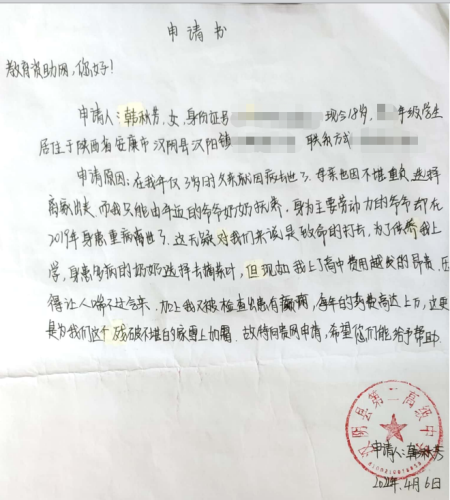 申请书
教育资助网,您好!
申请人:韩秋芳,女,身份证号 现今18岁, 年级学生
居住于陕西省安康市汉阴县汉阳镇 联系方式
申请原因:在我年仅3岁时父亲就因病去世了.母亲也因不堪重负选择
离家出走.而我只能由年迈的爷爷奶奶抚养,身为主要劳动力的爷爷却在
2019年身患重病离世了.这无疑对我们来说是致命的打击,为了供我上
学,身患多病的奶奶选择去摘茶叶,但现如今我上高中费用越发的昂贵,压
得让人喘不过气来.加上我又被检查出患有癫痫,每年的药费高达上万,这更
是为我们这个残破不堪的家雪上加霜.故特向贵网申请,希望您们能给予帮助.
汉阴县第二高级中学
申请人:韩秋芳
年4月6日